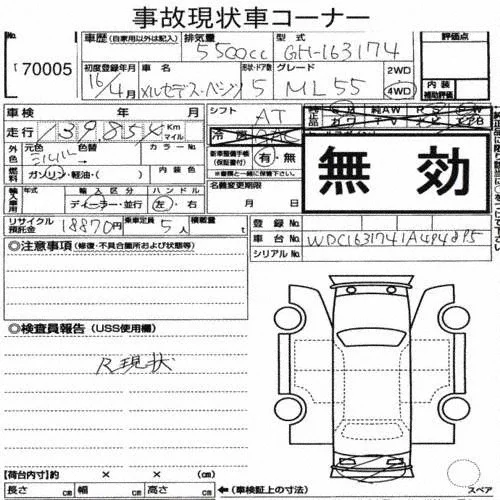 事故現状車コーナー
No.
70005
車歴 (自家用以外は記入) 排気量 5500cc 型式 GH-163174 評価点
初度登録年月 16/4月 車名 メルセデス・ベンツ 形状・ドア数 5 グレード ML55 2WD 4WD 内装補助評価
車検 年 月 シフト AT
走行 139,854 Km マイル 冷房
外色 元色 シルバー 色替 カラーNo. 新車整備手帳(保証書付) 有・無
燃料 ガソリン・軽油・( ) 内装色 ※書類と一緒に保管下さい。
輸入車用 年式 輸入区分 ディーラー・並行 ハンドル 左・右 名義変更期限 月 日
無 効
リサイクル預託金 18870円 乗車定員 5人 積載量 t
登録No.
車台No. WDC1631741A494895
シリアルNo.
◎注意事項 (修復・不具合箇所および状態等)
◎検査員報告 (USS使用欄)
R現状
【荷台内寸】約 × × (cm)
長さ cm 幅 cm 高さ cm ←(車検証上の寸法)
スペア